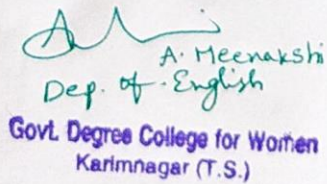 A. Meenakshi
Dep. of. English
Govt. Degree College for Women
Karimnagar (T.S.)